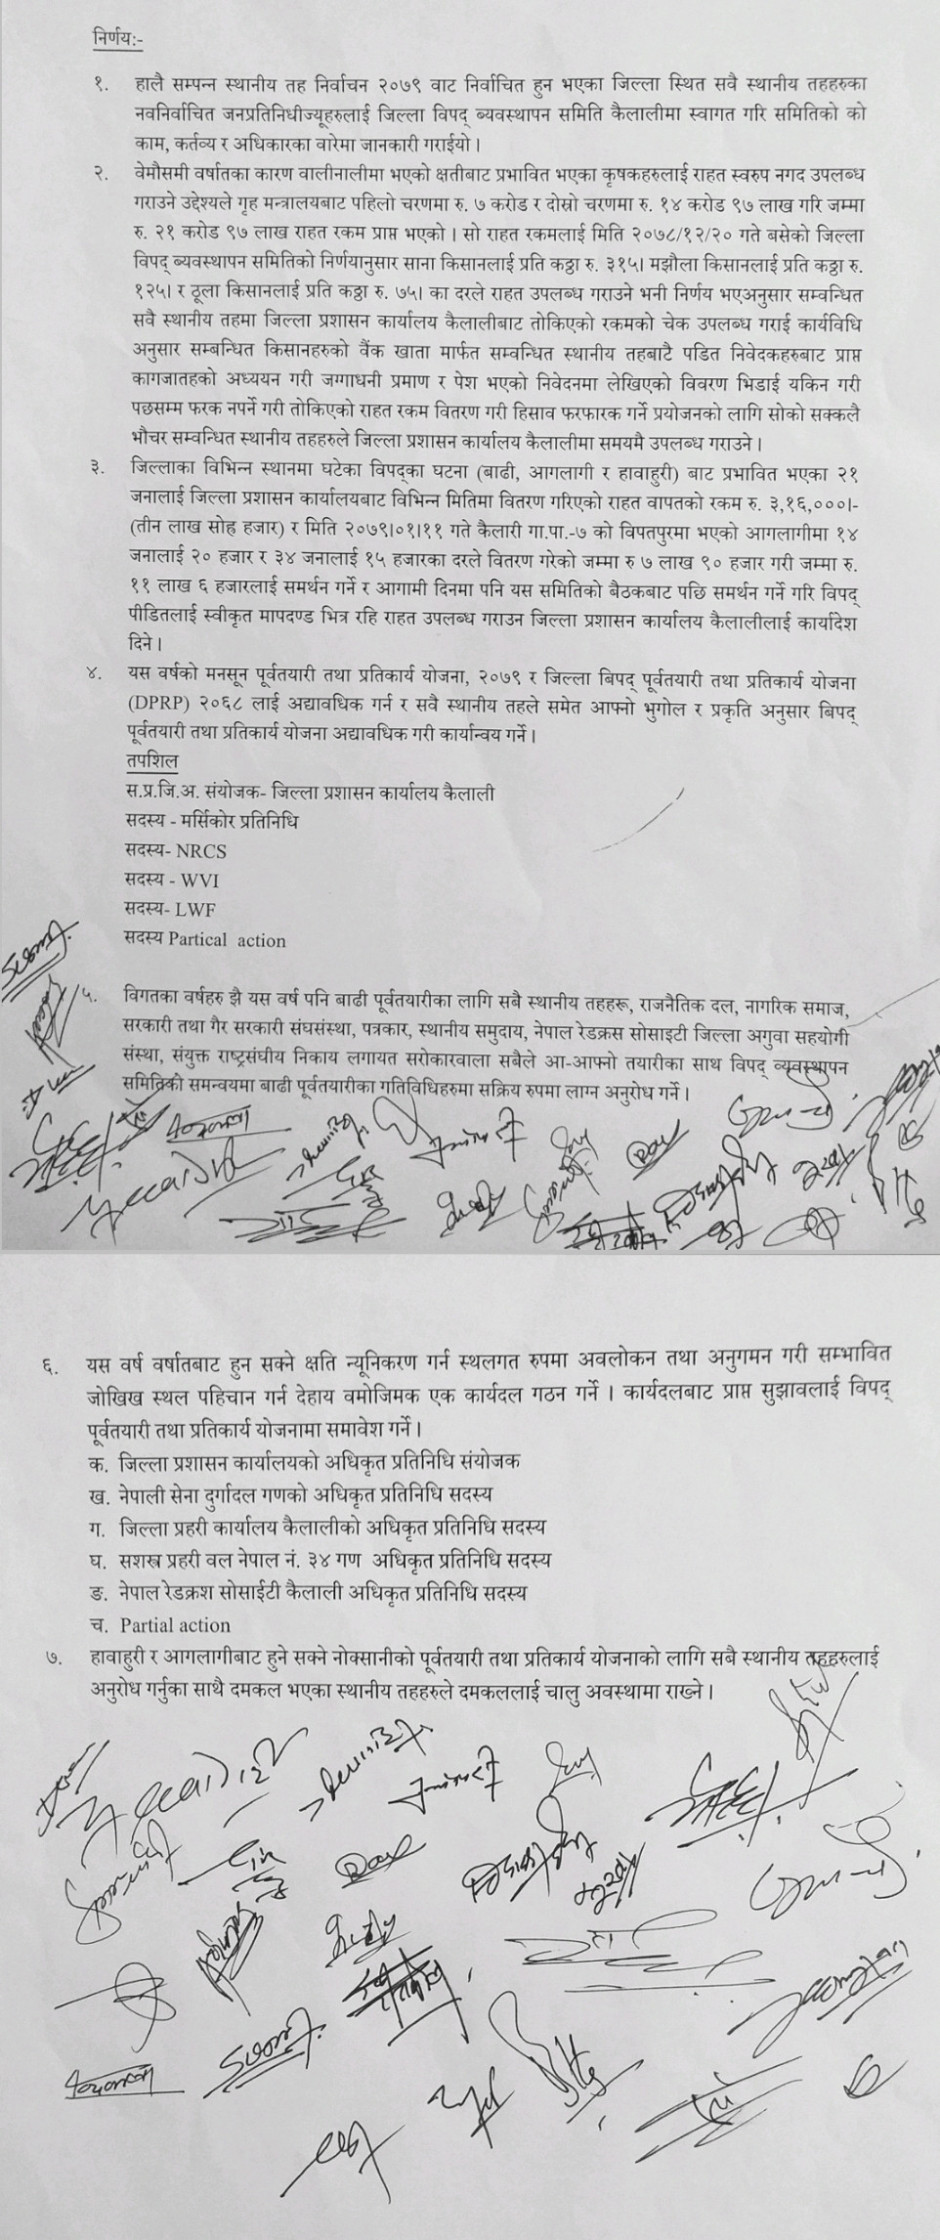 निर्णय:-
१. हालै सम्पन्न स्थानीय तह निर्वाचन २०७९ वाट निर्वाचित हुन भएका जिल्ला स्थित सवै स्थानीय तहहरुका
नवनिर्वाचित जनप्रतिनिधीज्यूहरुलाई जिल्ला विपद् ब्यवस्थापन समिति कैलालीमा स्वागत गरि समितिको को
काम, कर्तव्य र अधिकारका वारेमा जानकारी गराईयो ।
२. वेमौसमी वर्षातका कारण वालीनालीमा भएको क्षतीबाट प्रभावित भएका कृषकहरुलाई राहत स्वरुप नगद उपलब्ध
गराउने उद्देश्यले गृह मन्त्रालयबाट पहिलो चरणमा रु. ७ करोड र दोस्रो चरणमा रु. १४ करोड ९७ लाख गरि जम्मा
रु. २१ करोड ९७ लाख राहत रकम प्राप्त भएको । सो राहत रकमलाई मिति २०७८/१२/२० गते बसेको जिल्ला
विपद् ब्यवस्थापन समितिको निर्णयानुसार साना किसानलाई प्रति कठ्ठा रु. ३१५। मझौला किसानलाई प्रति कठ्ठा रु.
१२५। र ठूला किसानलाई प्रति कठ्ठा रु. ७५। का दरले राहत उपलब्ध गराउने भनी निर्णय भएअनुसार सम्वन्धित
सवै स्थानीय तहमा जिल्ला प्रशासन कार्यालय कैलालीबाट तोकिएको रकमको चेक उपलब्ध गराई कार्यविधि
अनुसार सम्बन्धित किसानहरुको वैंक खाता मार्फत सम्वन्धित स्थानीय तहबाटै पडित निवेदकहरुबाट प्राप्त
कागजातहको अध्ययन गरी जग्गाधनी प्रमाण र पेश भएको निवेदनमा लेखिएको विवरण भिडाई यकिन गरी
पछसम्म फरक नपर्ने गरी तोकिएको राहत रकम वितरण गरी हिसाव फरफारक गर्ने प्रयोजनको लागि सोको सक्कलै
भौचर सम्वन्धित स्थानीय तहहरुले जिल्ला प्रशासन कार्यालय कैलालीमा समयमै उपलब्ध गराउने ।
३. जिल्लाका विभिन्न स्थानमा घटेका विपद्का घटना (बाढी, आगलागी र हावाहुरी) बाट प्रभावित भएका २१
जनालाई जिल्ला प्रशासन कार्यालयबाट विभिन्न मितिमा वितरण गरिएको राहत वापतको रकम रु. ३,१६,०००।-
(तीन लाख सोह्र हजार) र मिति २०७९।०१।११ गते कैलारी गा.पा.-७ को विपतपुरमा भएको आगलागीमा १४
जनालाई २० हजार र ३४ जनालाई १५ हजारका दरले वितरण गरेको जम्मा रु ७ लाख ९० हजार गरी जम्मा रु.
११ लाख ६ हजारलाई समर्थन गर्ने र आगामी दिनमा पनि यस समितिको बैठकबाट पछि समर्थन गर्ने गरि विपद्
पीडितलाई स्वीकृत मापदण्ड भित्र रहि राहत उपलब्ध गराउन जिल्ला प्रशासन कार्यालय कैलालीलाई कार्यादेश
दिने ।
४. यस वर्षको मनसून पूर्वतयारी तथा प्रतिकार्य योजना, २०७९ र जिल्ला बिपद् पूर्वतयारी तथा प्रतिकार्य योजना
(DPRP) २०६८ लाई अद्यावधिक गर्न र सवै स्थानीय तहले समेत आफ्नो भुगोल र प्रकृति अनुसार बिपद्
पूर्वतयारी तथा प्रतिकार्य योजना अद्यावधिक गरी कार्यान्वय गर्ने ।
तपशिल
स.प्र.जि.अ. संयोजक- जिल्ला प्रशासन कार्यालय कैलाली
सदस्य - मर्सिकोर प्रतिनिधि
सदस्य- NRCS
सदस्य - WVI
सदस्य- LWF
सदस्य Partical action
५. विगतका वर्षहरु झै यस वर्ष पनि बाढी पूर्वतयारीका लागि सबै स्थानीय तहहरू, राजनैतिक दल, नागरिक समाज,
सरकारी तथा गैर सरकारी संघसंस्था, पत्रकार, स्थानीय समुदाय, नेपाल रेडक्रस सोसाइटी जिल्ला अगुवा सहयोगी
संस्था, संयुक्त राष्ट्रसंघीय निकाय लगायत सरोकारवाला सबैले आ-आफ्नो तयारीका साथ विपद् व्यवस्थापन
समितिको समन्वयमा बाढी पूर्वतयारीका गतिविधिहरुमा सक्रिय रुपमा लाग्न अनुरोध गर्ने ।
६. यस वर्ष वर्षातबाट हुन सक्ने क्षति न्यूनिकरण गर्न स्थलगत रुपमा अवलोकन तथा अनुगमन गरी सम्भावित
जोखिख स्थल पहिचान गर्न देहाय वमोजिमक एक कार्यदल गठन गर्ने । कार्यदलबाट प्राप्त सुझावलाई विपद्
पूर्वतयारी तथा प्रतिकार्य योजनामा समावेश गर्ने ।
क. जिल्ला प्रशासन कार्यालयको अधिकृत प्रतिनिधि संयोजक
ख. नेपाली सेना दुर्गादल गणको अधिकृत प्रतिनिधि सदस्य
ग. जिल्ला प्रहरी कार्यालय कैलालीको अधिकृत प्रतिनिधि सदस्य
घ. सशस्त्र प्रहरी वल नेपाल नं. ३४ गण अधिकृत प्रतिनिधि सदस्य
ङ. नेपाल रेडक्रश सोसाईटी कैलाली अधिकृत प्रतिनिधि सदस्य
च. Partial action
७. हावाहुरी र आगलागीबाट हुने सक्ने नोक्सानीको पूर्वतयारी तथा प्रतिकार्य योजनाको लागि सबै स्थानीय तहहरुलाई
अनुरोध गर्नुका साथै दमकल भएका स्थानीय तहहरुले दमकललाई चालु अवस्थामा राख्ने ।